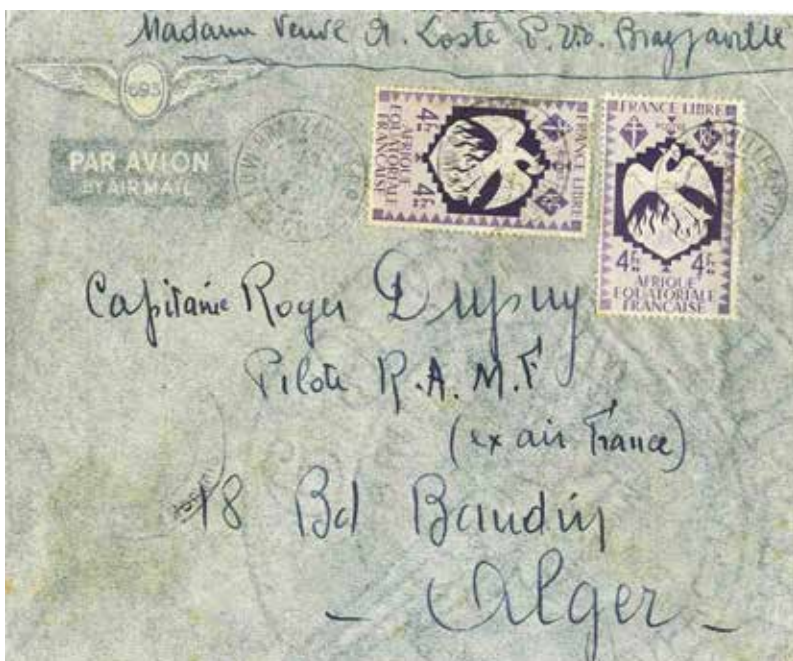 Madame Veuve A. Coste P.V.O. Brazzaville
693
PAR AVION
BY AIR MAIL
FRANCE LIBRE
RF
4F
4F
AFRIQUE
EQUATORIALE
FRANÇAISE
FRANCE LIBRE
RF
4F
4F
AFRIQUE
EQUATORIALE
FRANÇAISE
Capitaine Roger Dupuy
Pilote R.A.M.F
(ex air France)
18 Bd Baudin
- Alger -